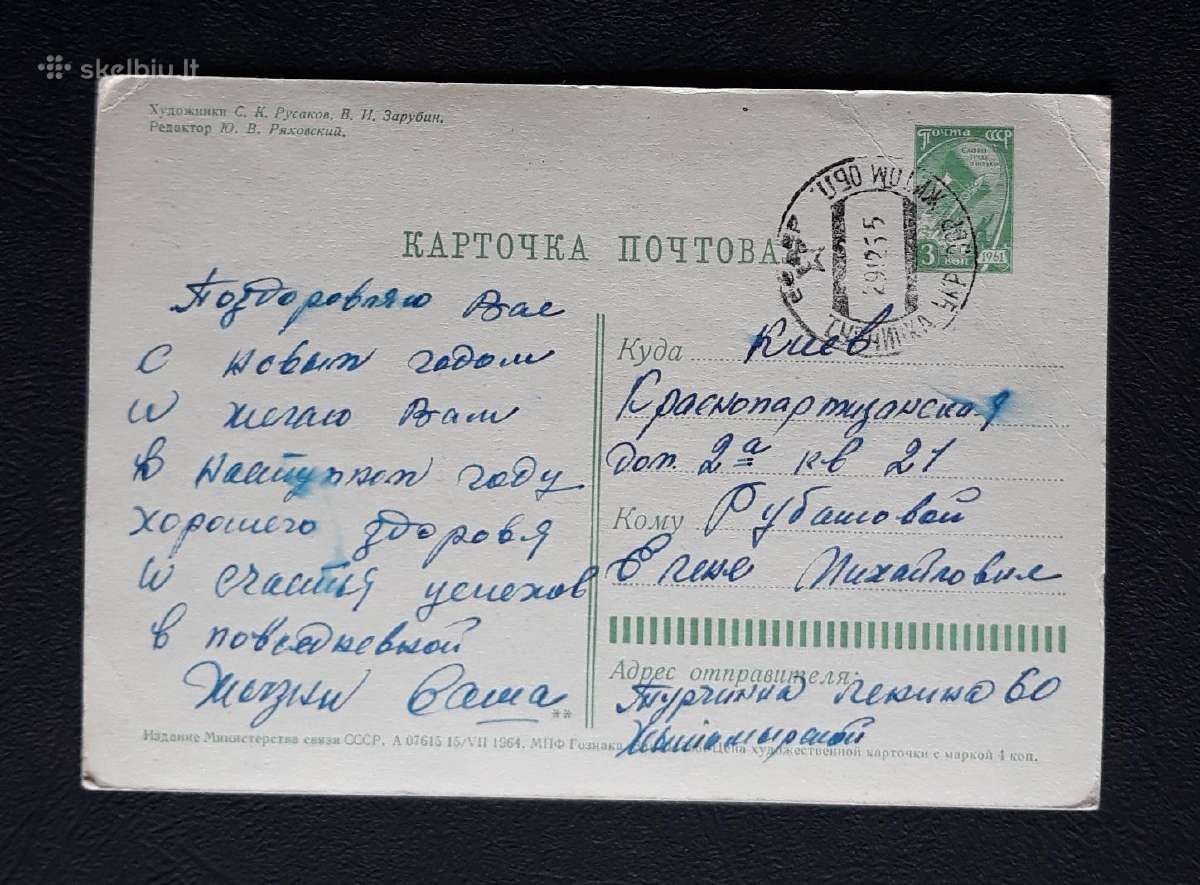 skelbiu.lt
Художники С. К. Русаков, В. И. Зарубин.
Редактор Ю. В. Ряховский.
Почта СССР
3 коп 1961
КАРТОЧКА ПОЧТОВАЯ
29 12 65
Поздоровляю Вас
С новым годом
И желаю Вам
в наступном году
хорошего здоровя
И счастья успехов
в повседневной
Жизни Саша
Куда Киев
Краснопартизанская
дом 2а кв 21
Кому Рубашовой
Елене Михайловне
Адрес отправителя:
Турчинка Ленина 60
Житомирской
Издание Министерства связи СССР. А 07615 15/VII 1964. МПФ Гознака Цена художественной карточки с маркой 4 коп.